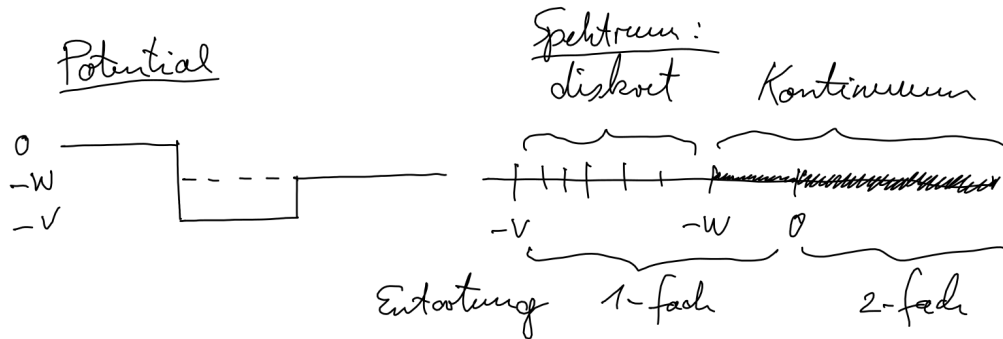 Potential
Spektrum:
diskret Kontinuum
0
-W
-V
-V -W 0
Entartung 1-fach 2-fach